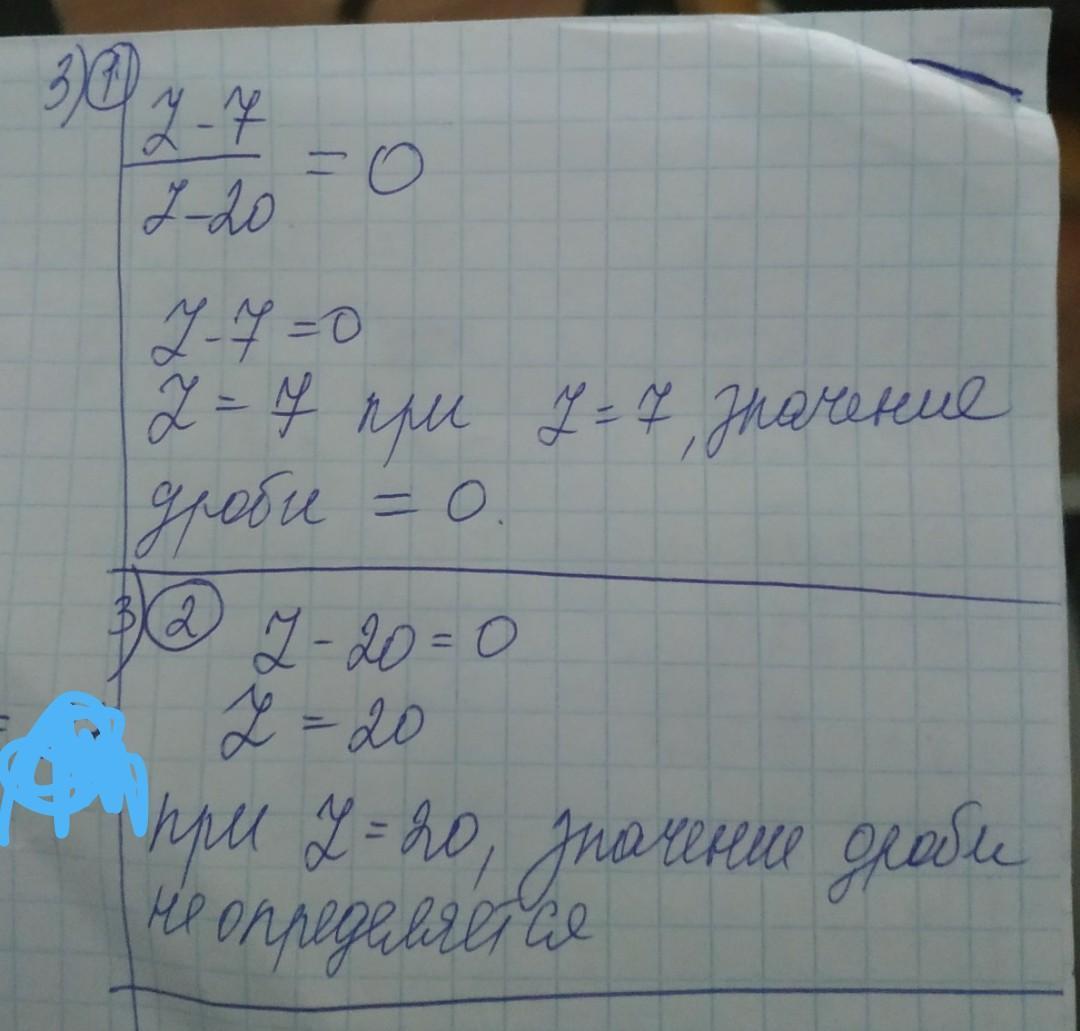 3) 1
z - 7
z - 20
= 0
z - 7 = 0
z = 7 при z = 7, значение
дроби = 0.
3) 2 z - 20 = 0
z = 20
при z = 20, значение дроби
не определяется
=